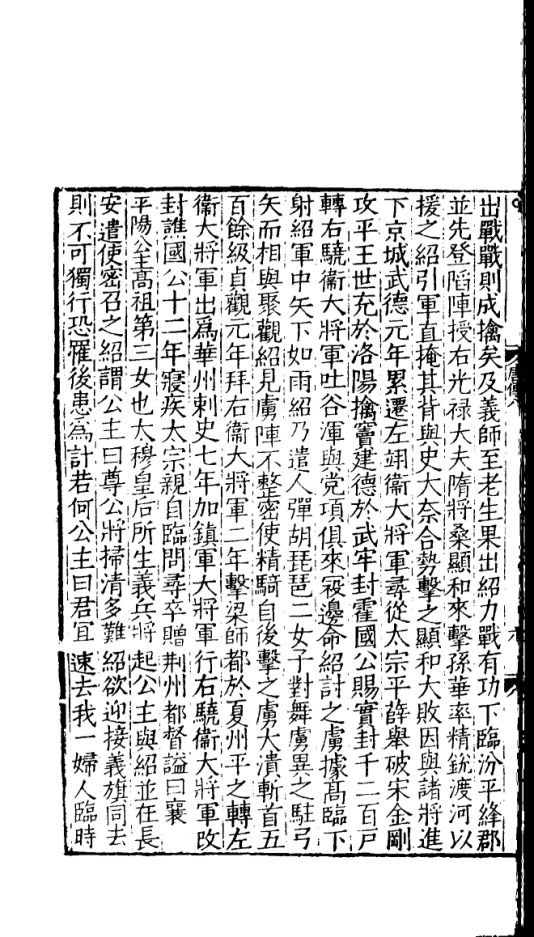 出戰戰則成擒矣及義師至老生果出紹力戰有功下臨汾平絳郡
並先登陷陣授右光禄大夫隋將桑顯和來擊孫華率精銳渡河以
援之紹引軍直掩其背與史大奈合勢擊之顯和大敗因與諸將進
下京城武德元年累遷左翊衞大將軍尋從太宗平薛舉破宋金剛
攻平王世充於洛陽擒竇建德於武牢封霍國公賜實封千二百戸
轉右驍衞大將軍吐谷渾與党項俱來寇邊命紹討之虜據髙臨下
射紹軍中矢下如雨紹乃遣人彈胡琵琶二女子對舞虜異之駐弓
矢而相與聚觀紹見虜陣不整密使精騎自後擊之虜大潰斬首五
百餘級貞觀元年拜右衞大將軍二年擊梁師都於夏州平之轉左
衞大將軍出爲華州刺史七年加鎮軍大將軍行右驍衞大將軍改
封譙國公十二年寢疾太宗親自臨問尋卒贈荆州都督謚曰襄
平陽公主高祖第三女也太穆皇后所生義兵將起公主與紹並在長
安遣使密召之紹謂公主曰尊公將掃清多難紹欲迎接義旗同去
則不可獨行恐罹後患為計若何公主曰君冝速去我一婦人臨時